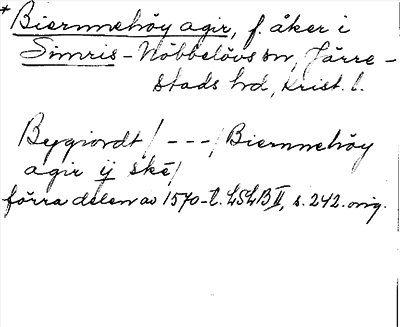 * Biermmehöy agir, f. åker i
Simris-Nöbbelövs sn, Järre-
stads hd, Krist. l.
Bygiordt / - - - / Biermmehöy
agir ij skē /
förra delen av 1570-t. LSLB II, s. 242. orig.